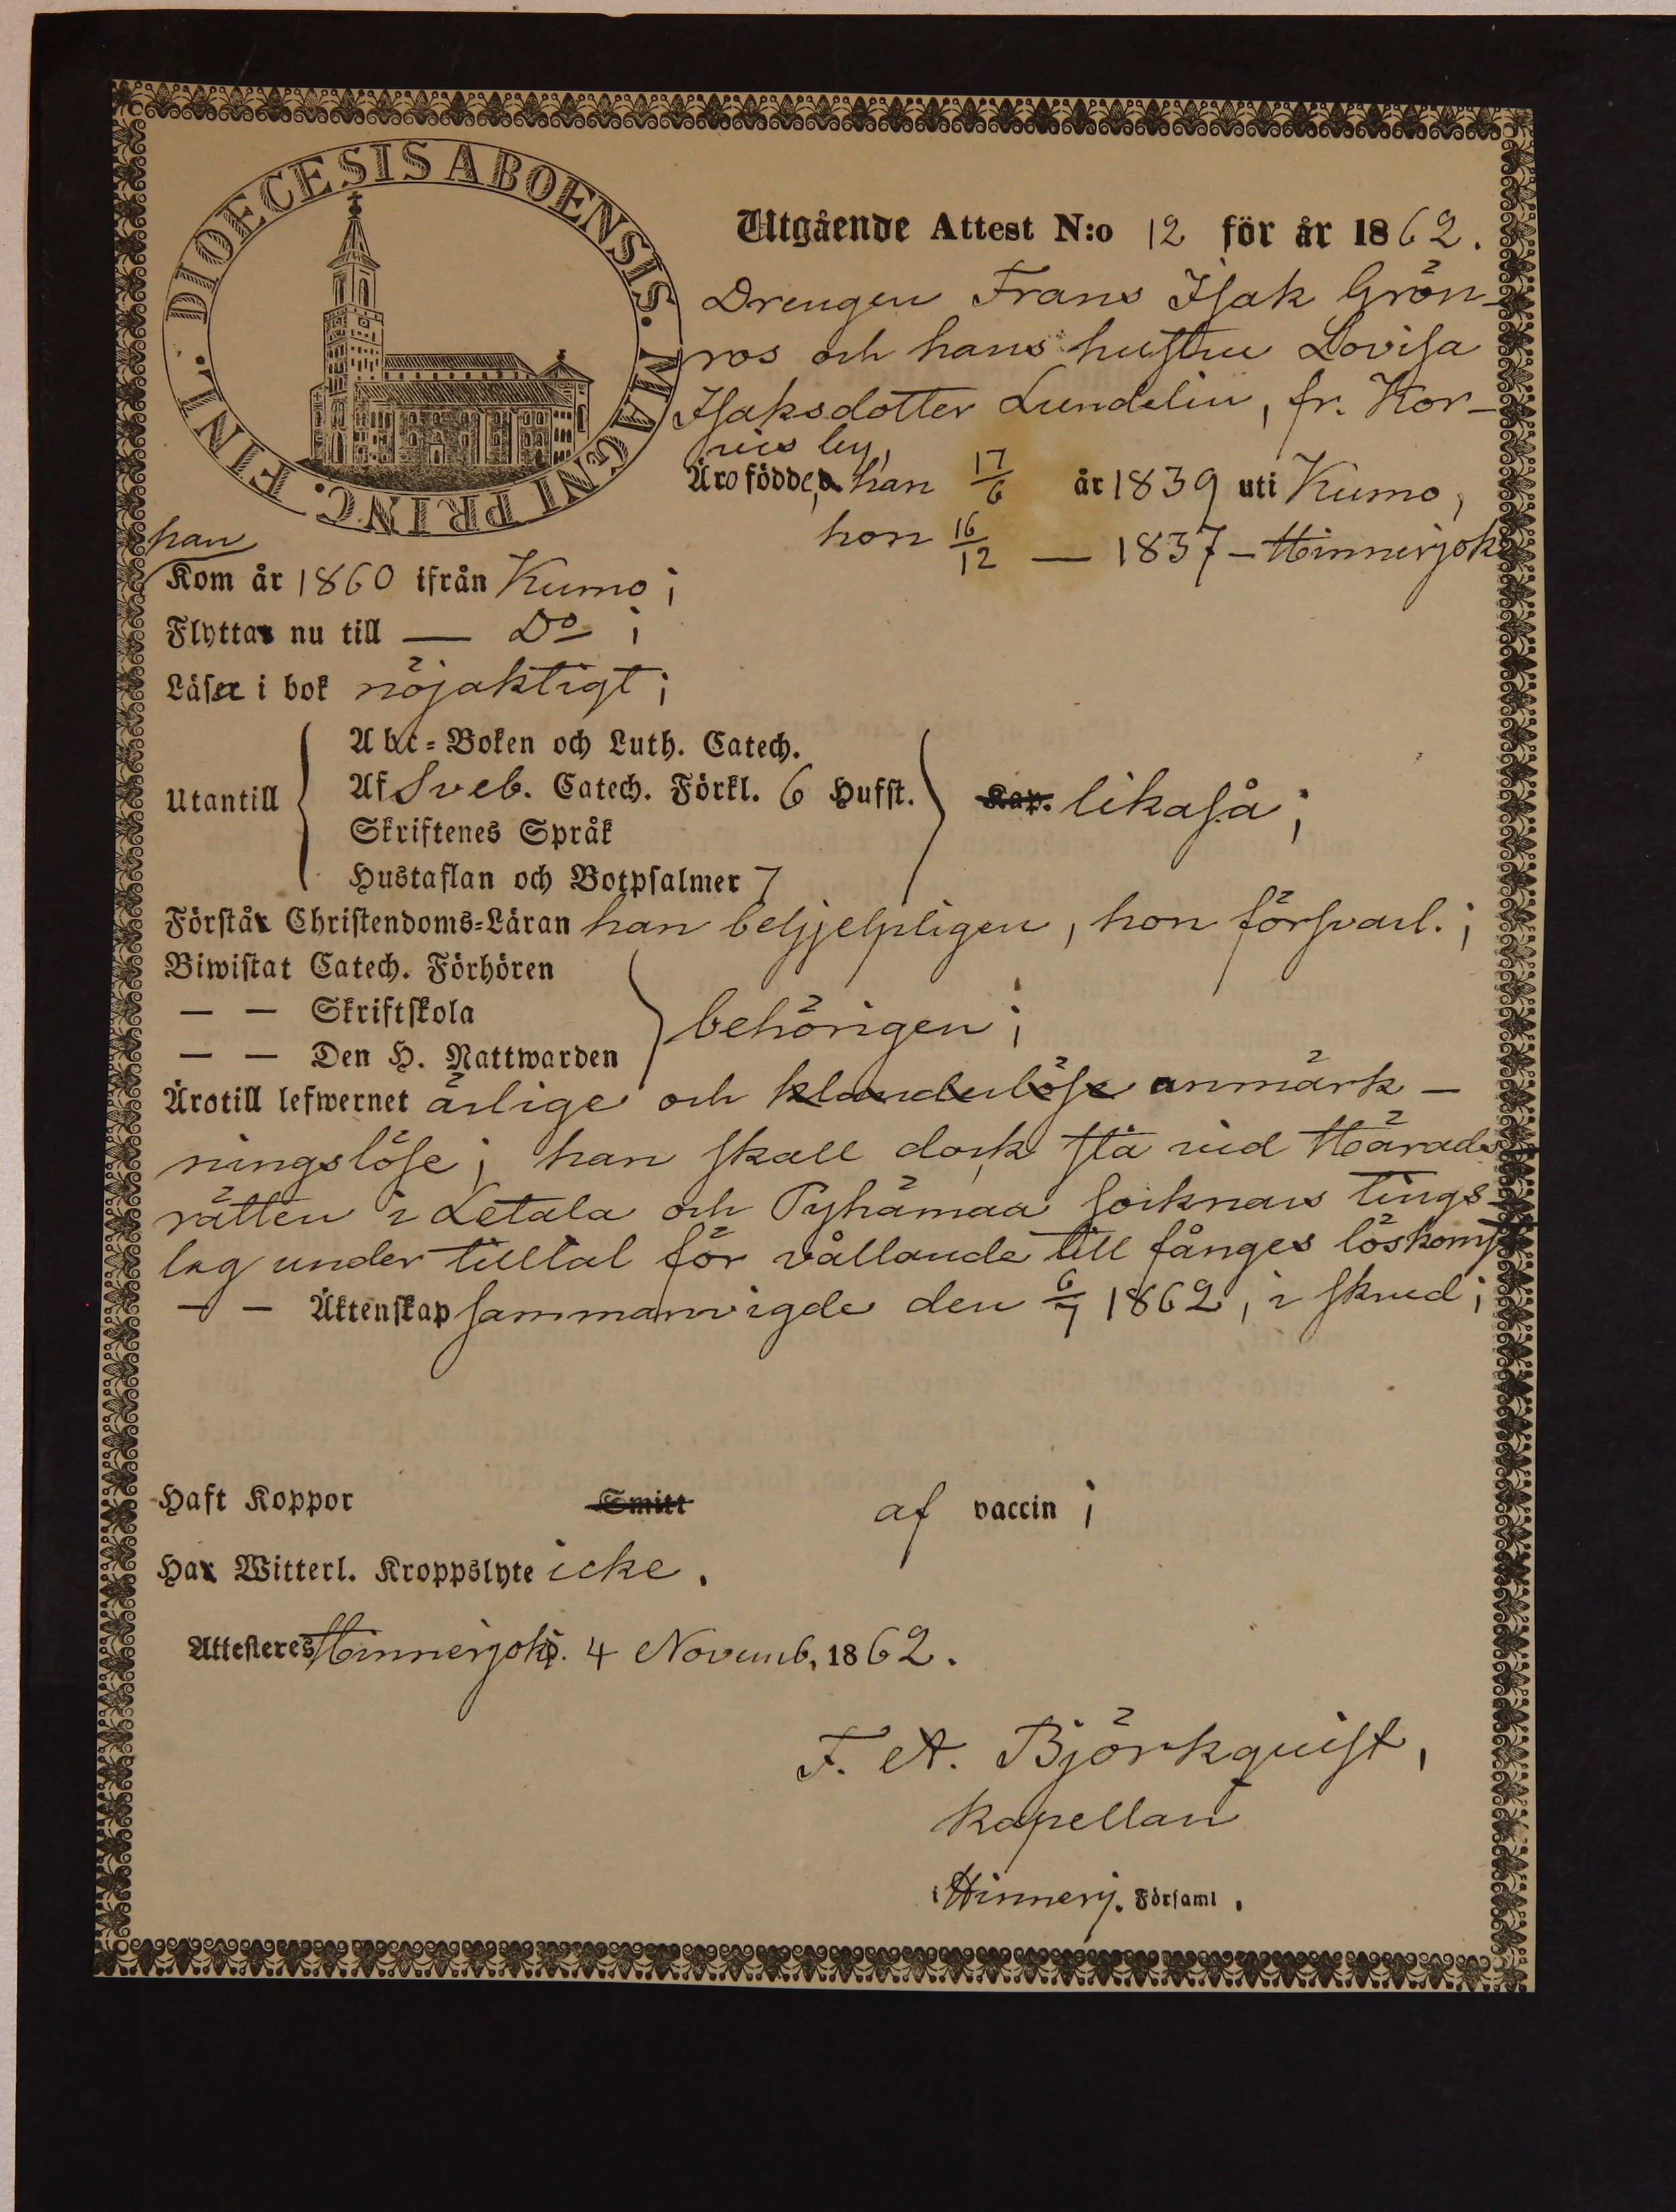 DIOECESIS ABOENSIS. MAGNI PRINC. FINL.
Utgående Attest N:o 12 för år 1862.
Drengen Frans Isak Grön-
ros och hans hustru Lovisa
Isaksdotter Lundelin, fr. Kor-
vois by,
Äro födde, han 17/6 år 1839 uti Kumo,
hon 16/12 — 1837 — Hinnerjoki
han
Kom år 1860 ifrån Kumo;
Flytta nu till — Do;
Läsa i bok nöjaktigt;
Utantill
Abc-Boken och Luth. Catech.
Af Sveb. Catech. Förkl. 6 Hufst.
Skriftenes Språk
Hustaflan och Botpsalmer 7
Kap. likaså;
Förstå Christendoms-Läran han behjelpligen, hon försvarl.;
Biwistat Catech. Förhören
— — Skriftskola
— — Den H. Nattwarden
behörigen;
Äro till lefwernet ärlige och klanderlöse anmärk-
ningslöse; han skall dock stå vid Härads
rätten i Letala och Pyhämaa socknars tings-
lag under tilltal för vållande till fånges löskomst
— — Äktenskap sammanvigde den 6/7 1862, i skrud;
Haft Koppor Smitt af vaccin;
Ha Witterl. Kroppslyte icke.
Attesteres Hinnerjoki. 4 Novemb, 1862.
F. A. Björkquist,
Kapellan
i Hinnerj. Församl.